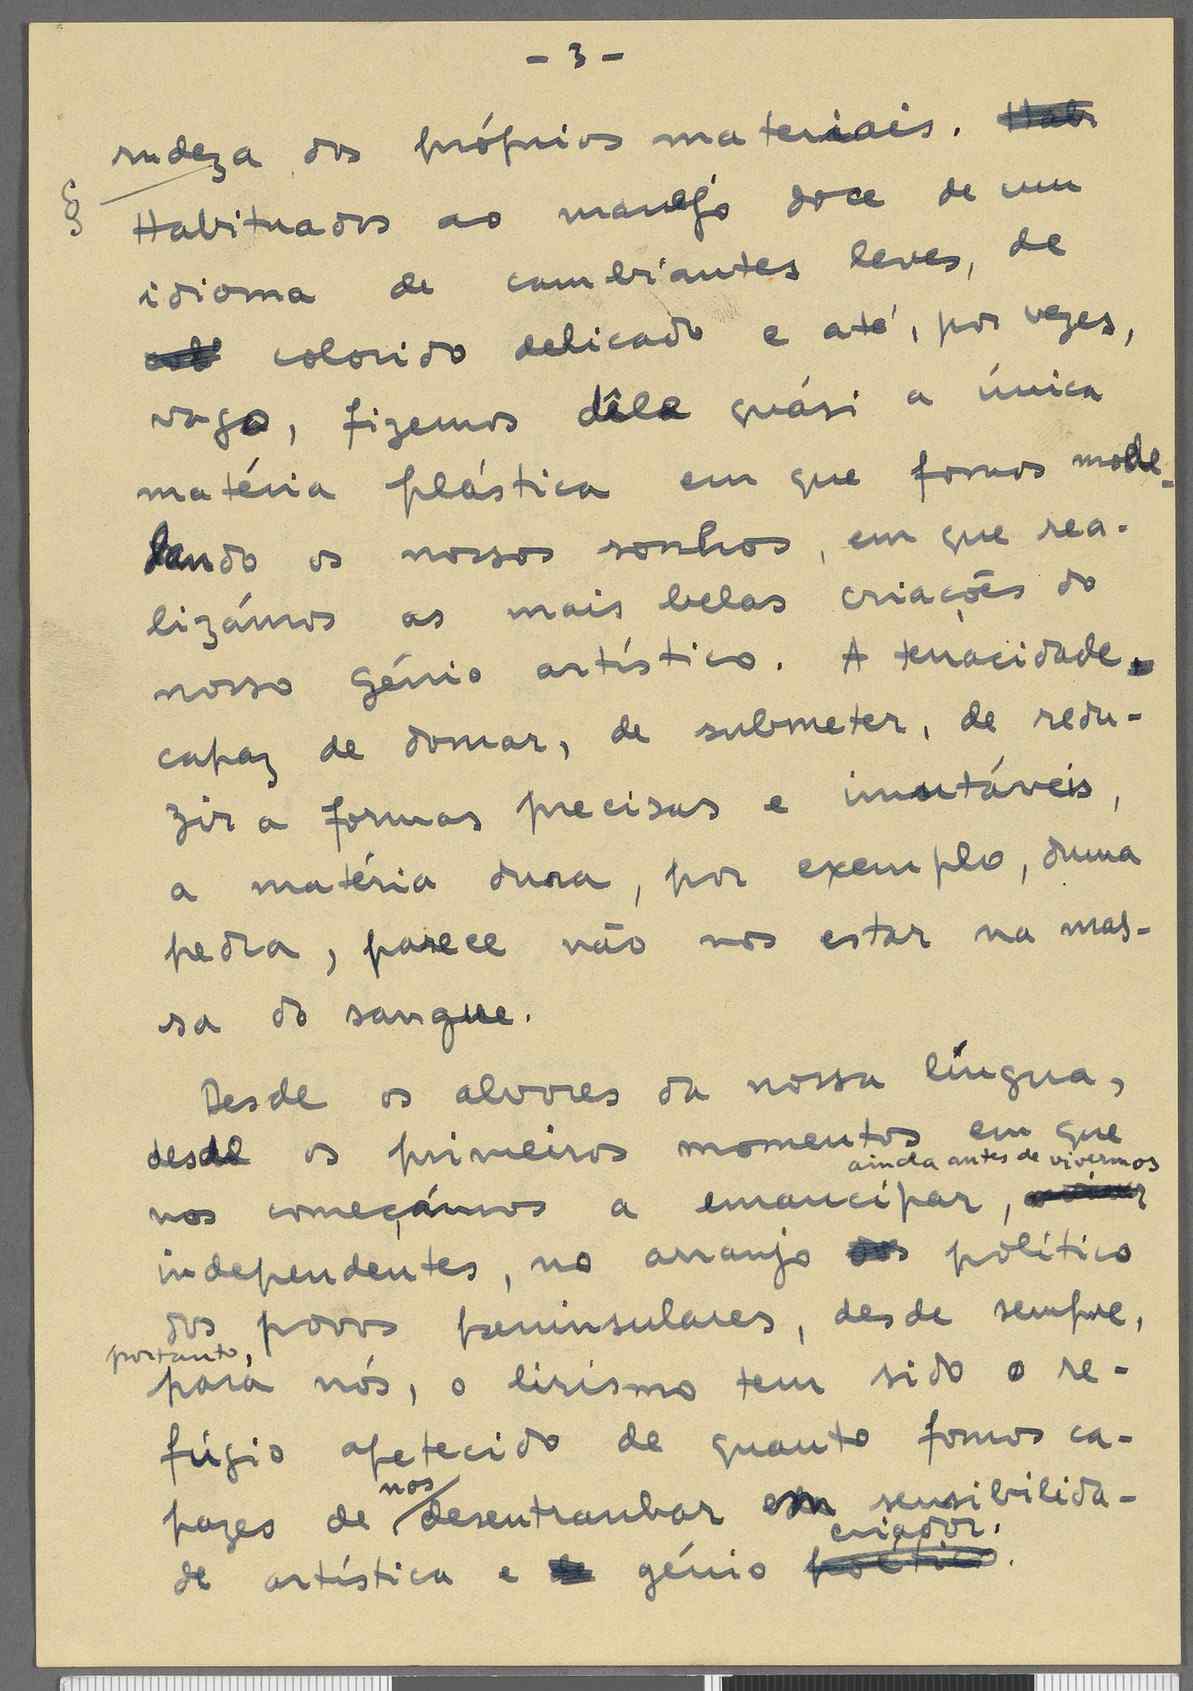 - 3 -
rudeza dos próprios materiais. Hab
§ Habituados ao manejo doce de um
idioma de cambiantes leves, de
colorido delicado e até, por vezes,
vago, fizemos dêle quási a única
matéria plástica em que fomos mode-
lando os nossos sonhos, em que rea-
lizámos as mais belas criações do
nosso génio artístico. A tenacidade
capaz de domar, de submeter, de redu-
zir a formas precisas e imutáveis,
a matéria dura, por exemplo, duma
pedra, parece não nos estar na mas-
sa do sangue.
Desde os alvores da nossa língua,
desde os primeiros momentos em que
ainda antes de vivermos
nos começámos a emancipar,
independentes, no arranjo político
dos povos peninsulares, desde sempre,
portanto,
para nós, o lirismo tem sido o re-
fúgio apetecido de quanto fomos ca-
nos
pazes de desentranhar em sensibilida-
criador.
de artística e génio poético.